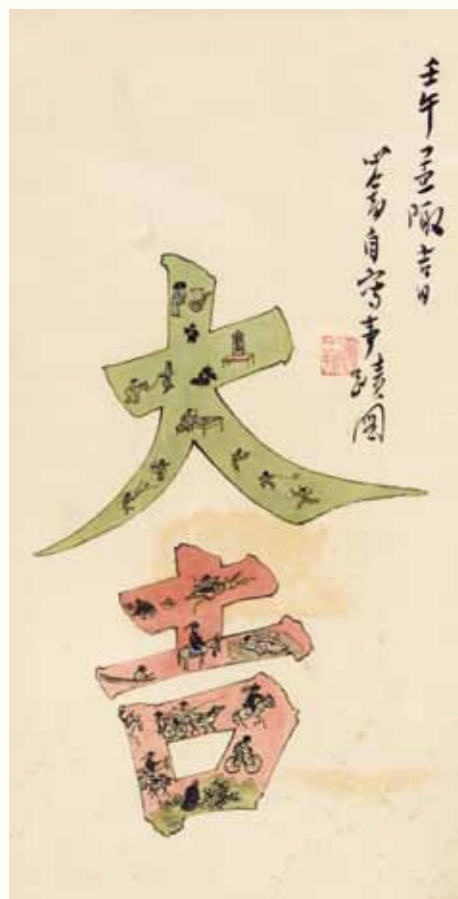 壬午孟陬吉日
心畬自寫事蹟圖
大吉